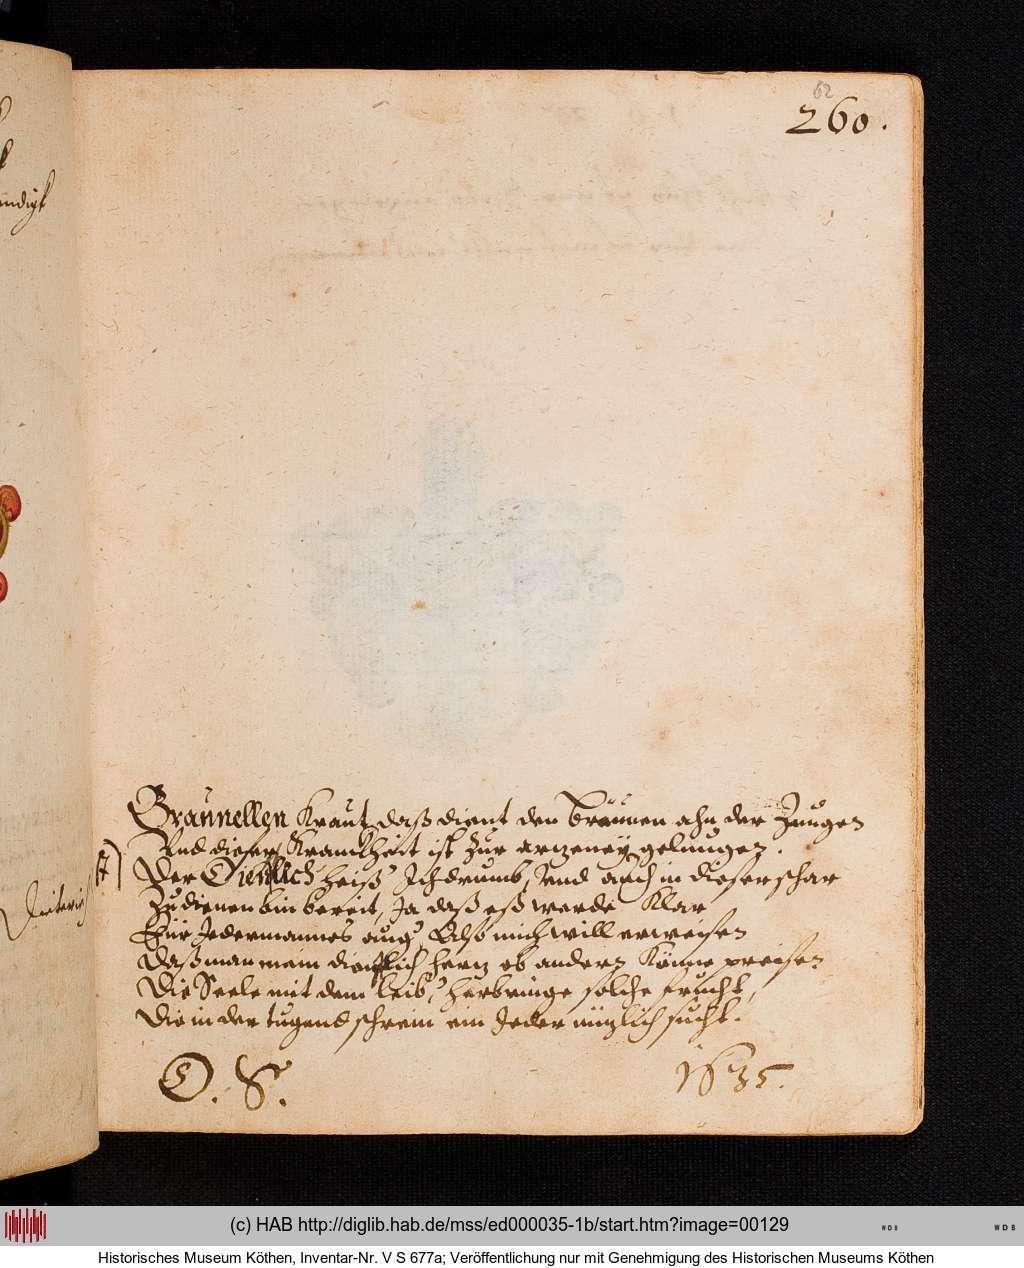 62
260.
Braünnellen Kraut, daß dient den bräunen ahn der Zungen
Und dieser Kranckheit ist zur artzeney gelungen.
Der Dienlich heiß' Ich drumb, Und auch in dieser schar
Zu dienen bin bereit, Ja daß eß werde klar
Für Jedermannes aug', Also mich will erweisen
Daß man mein dienstlich hertz ob andern könne preisen
Die Seele mit dem leib', herbringe solche frucht,
Die in der tugend schrein ein Jeder nüzlich sucht.
O. S. 1635.
(c) HAB http://diglib.hab.de/mss/ed000035-1b/start.htm?image=00129
WDB
WDB
Historisches Museum Köthen, Inventar-Nr. V S 677a; Veröffentlichung nur mit Genehmigung des Historischen Museums Köthen